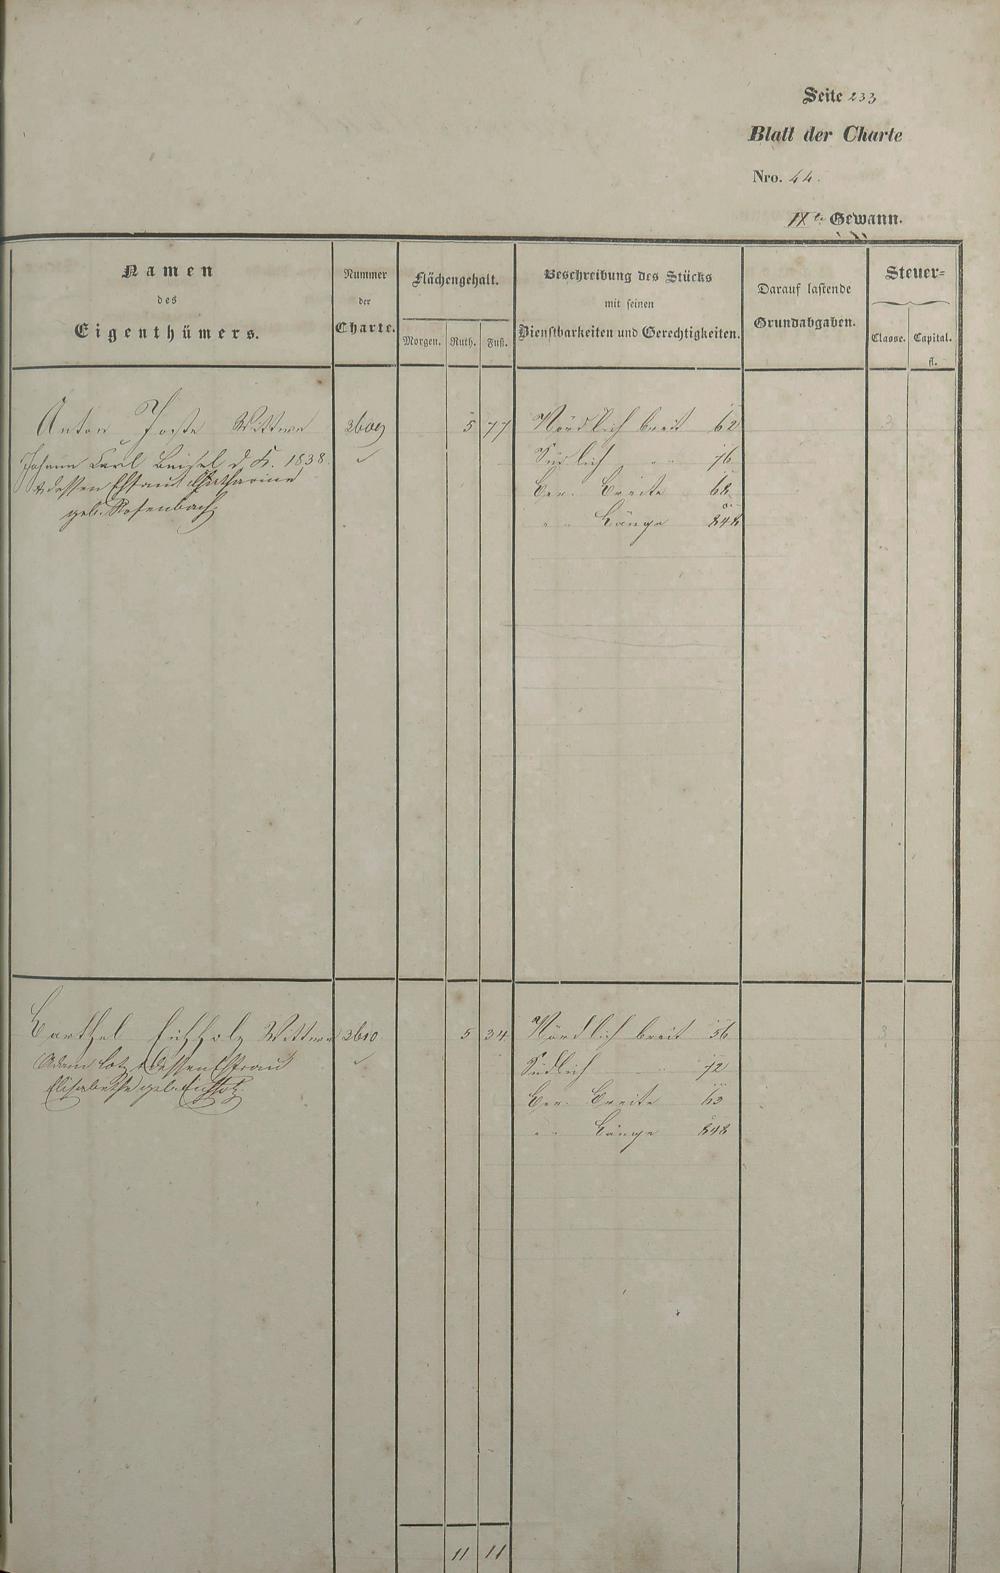 Seite 233
Blatt der Charte
Nro. 44.
IXte Gewann.
Namen
des
Eigenthümers.
Nummer
der
Charte.
Flächengehalt.
Morgen. Ruth. Fuß.
Beschreibung des Stücks
mit seinen
Dienstbarkeiten und Gerechtigkeiten.
Darauf lastende
Grundabgaben.
Steuer=
Classe. Capital.
fl.
Anton Wittwe 2609 5 77 Nördlich breit 62
Johann Carl Beisel d. K. 1838 Südlich " " 76
& dessen Ehefrau Catharine Ber. Breite 68
geb. Rosenbach " " Länge 848
Barthel Eichholz Wittwe 2610 5 34 Nördlich breit 56
Adam Lotz & dessen Ehefrau Südlich " " 72
Elisabethe geb. Eichholz Ber. Breite 63
" " Länge 848
11 11